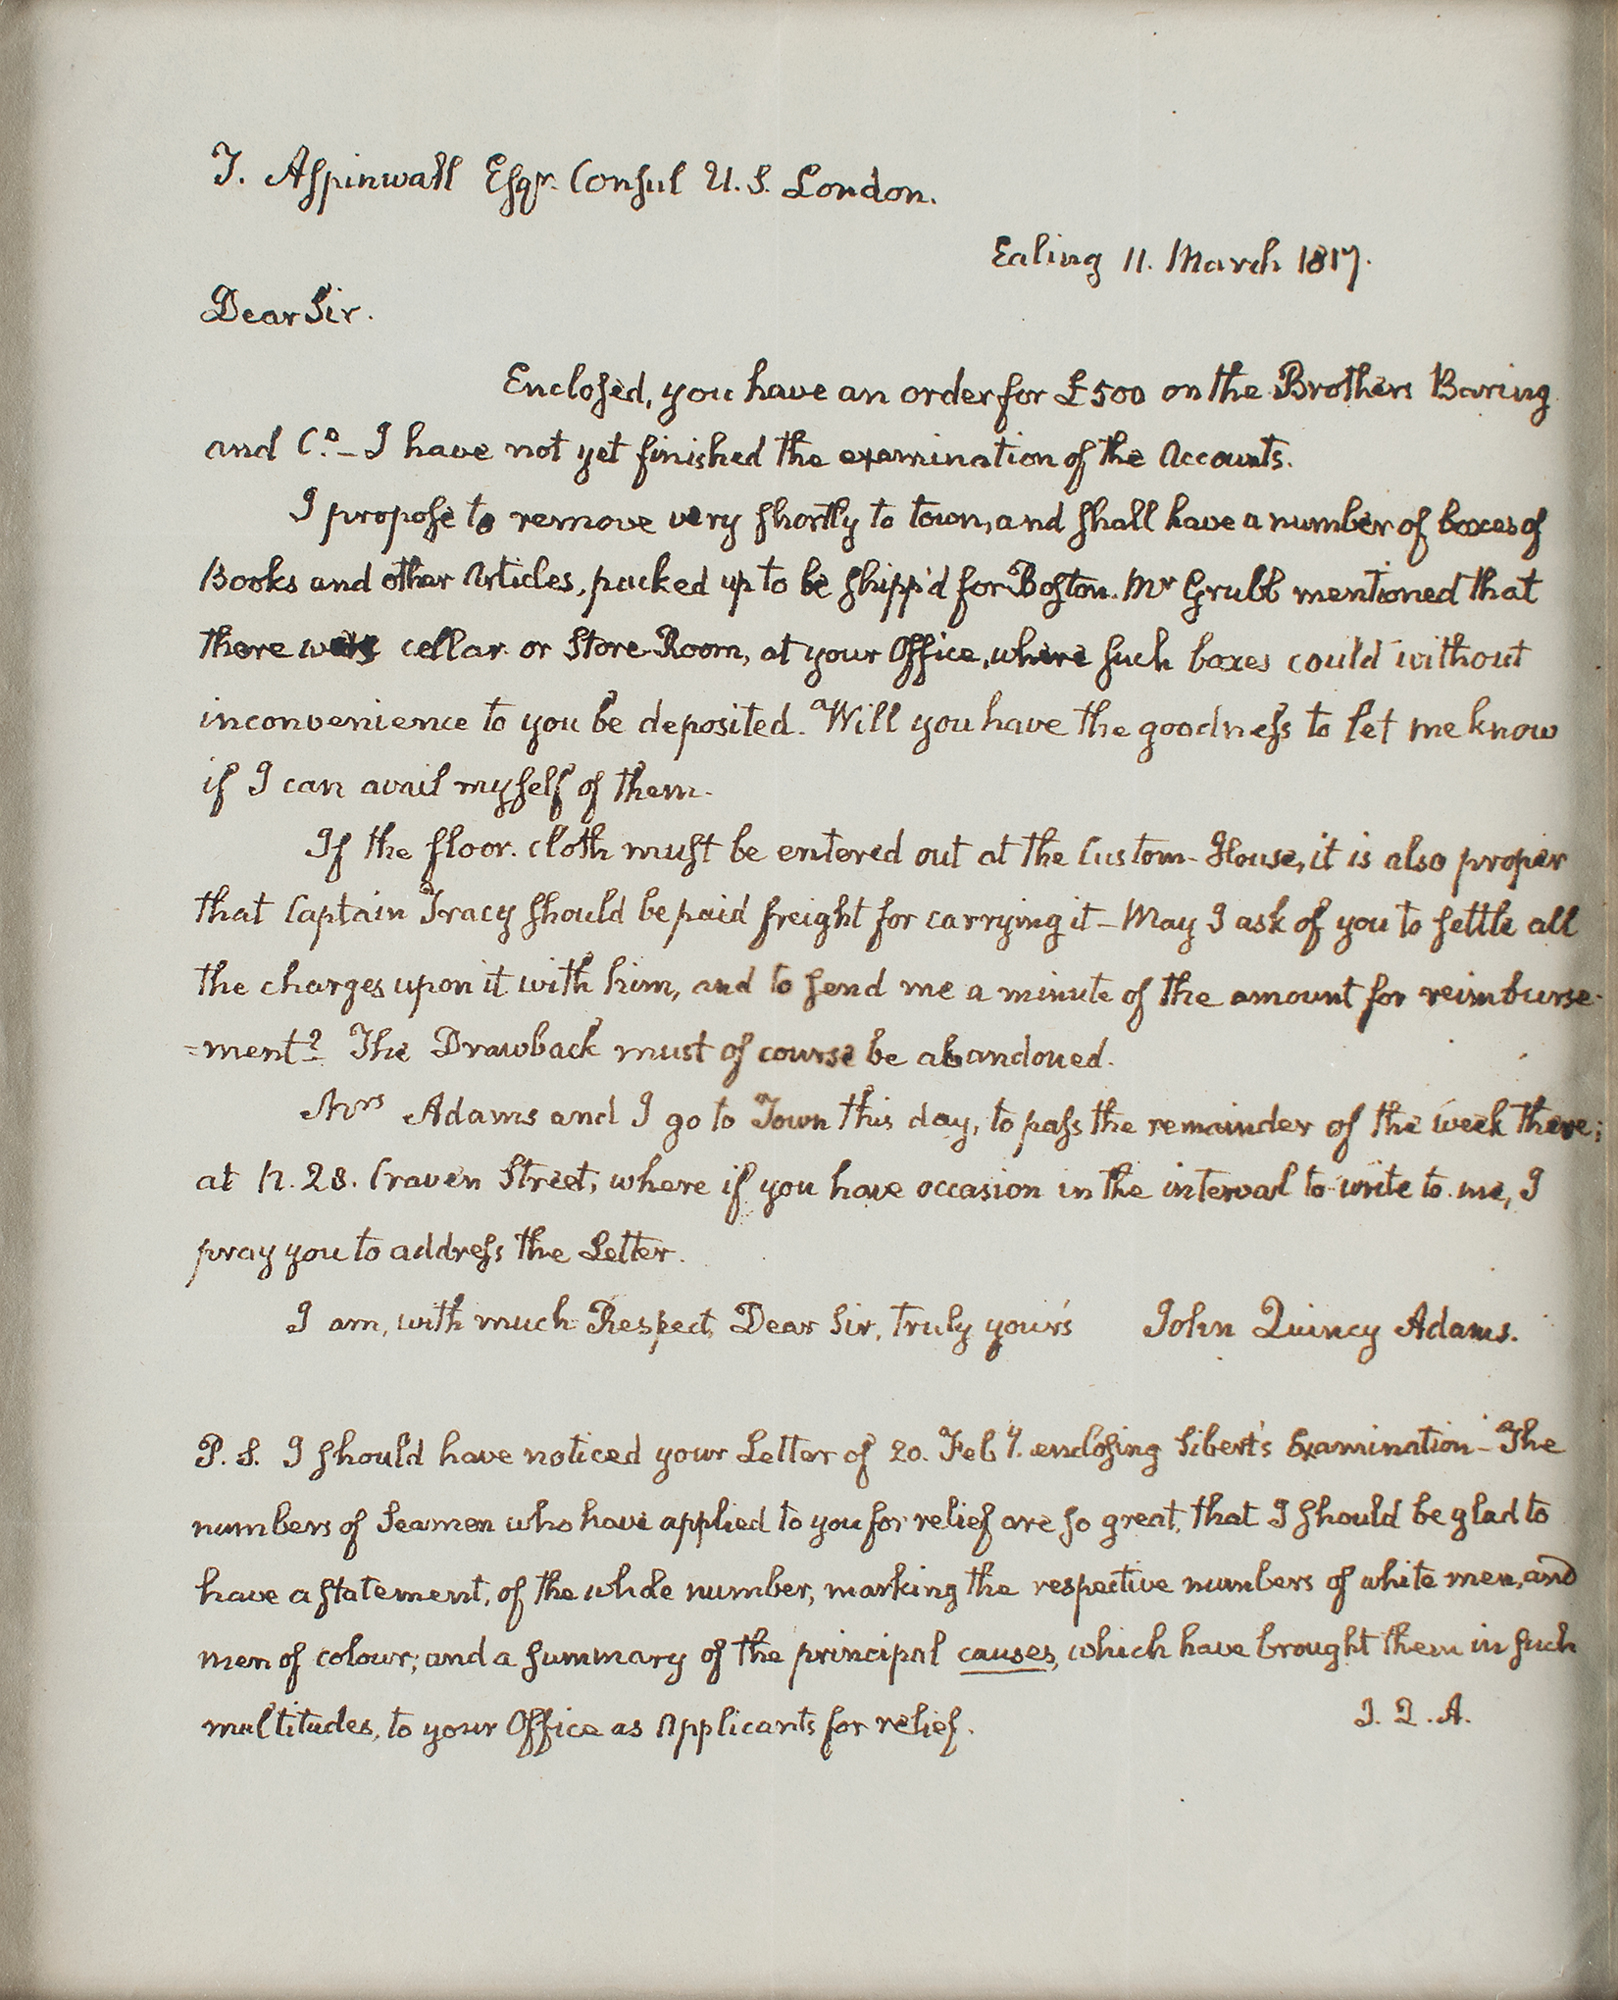 T. Aspinwall Esqr. Consul U. S. London.
Ealing 11. March 1817.
Dear Sir.
Enclosed, you have an order for £500 on the Brothers Baring
and Co. – I have not yet finished the examination of the Accounts.
I propose to remove very shortly to town, and shall have a number of boxes of
Books and other Articles, packed up to be shipp'd for Boston. Mr Grubb mentioned that
there cellar or Store-Room, at your Office, where such boxes could without
inconvenience to you be deposited. Will you have the goodness to let me know
if I can avail myself of them.
If the floor-cloth must be entered out at the Custom-House, it is also proper
that Captain Tracy should be paid freight for carrying it – May I ask of you to settle all
the charges upon it with him, and to send me a minute of the amount for reimburse-
=ment? The Drawback must of course be abandoned.
Mrs Adams and I go to Town this day, to pass the remainder of the week there;
at N. 28. Craven Street, where if you have occasion in the interval to write to me, I
pray you to address the Letter.
I am, with much Respect, Dear Sir, truly your's John Quincy Adams.
P. S. I should have noticed your Letter of 20. Feby. enclosing Sibert's Examination – The
numbers of Seamen who have applied to you for relief are so great, that I should be glad to
have a statement, of the whole number, marking the respective numbers of white men, and
men of colour; and a summary of the principal causes, which have brought them in such
multitudes, to your Office as Applicants for relief.
J. Q. A.